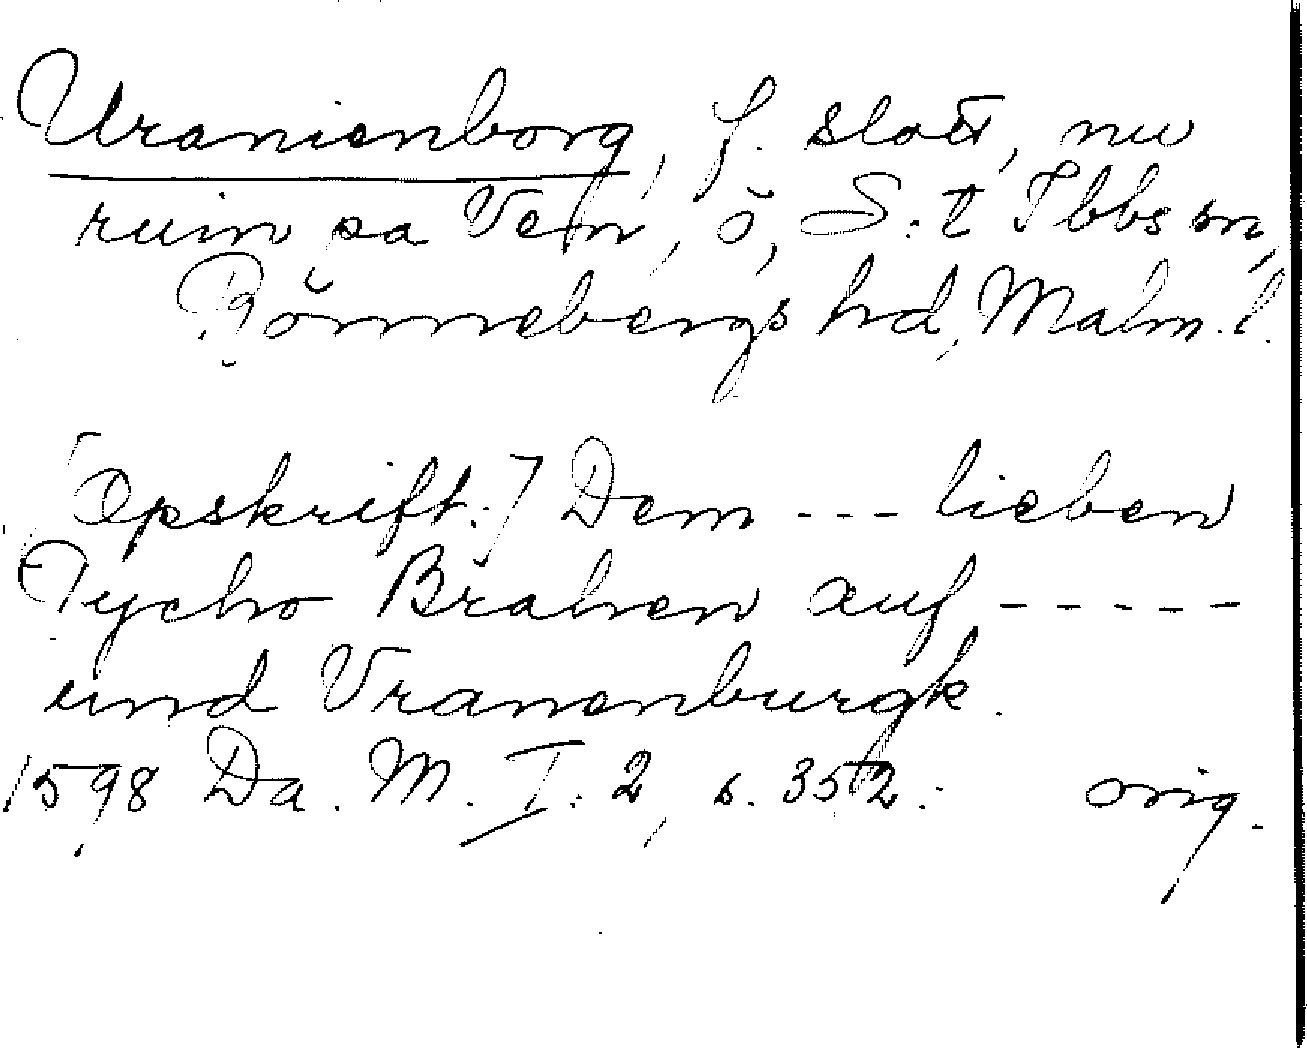 Uranienborg, f. slott, nu
ruin pa Ven, ö, S:t Ibbs sn,
Rönnebergs hd, Malm. l.
[Opskrift:] Dem --- lieben
Tycho Brahen auf -----
und Vranenburgk.
1598 Da. M. I: 2, s. 352. orig.